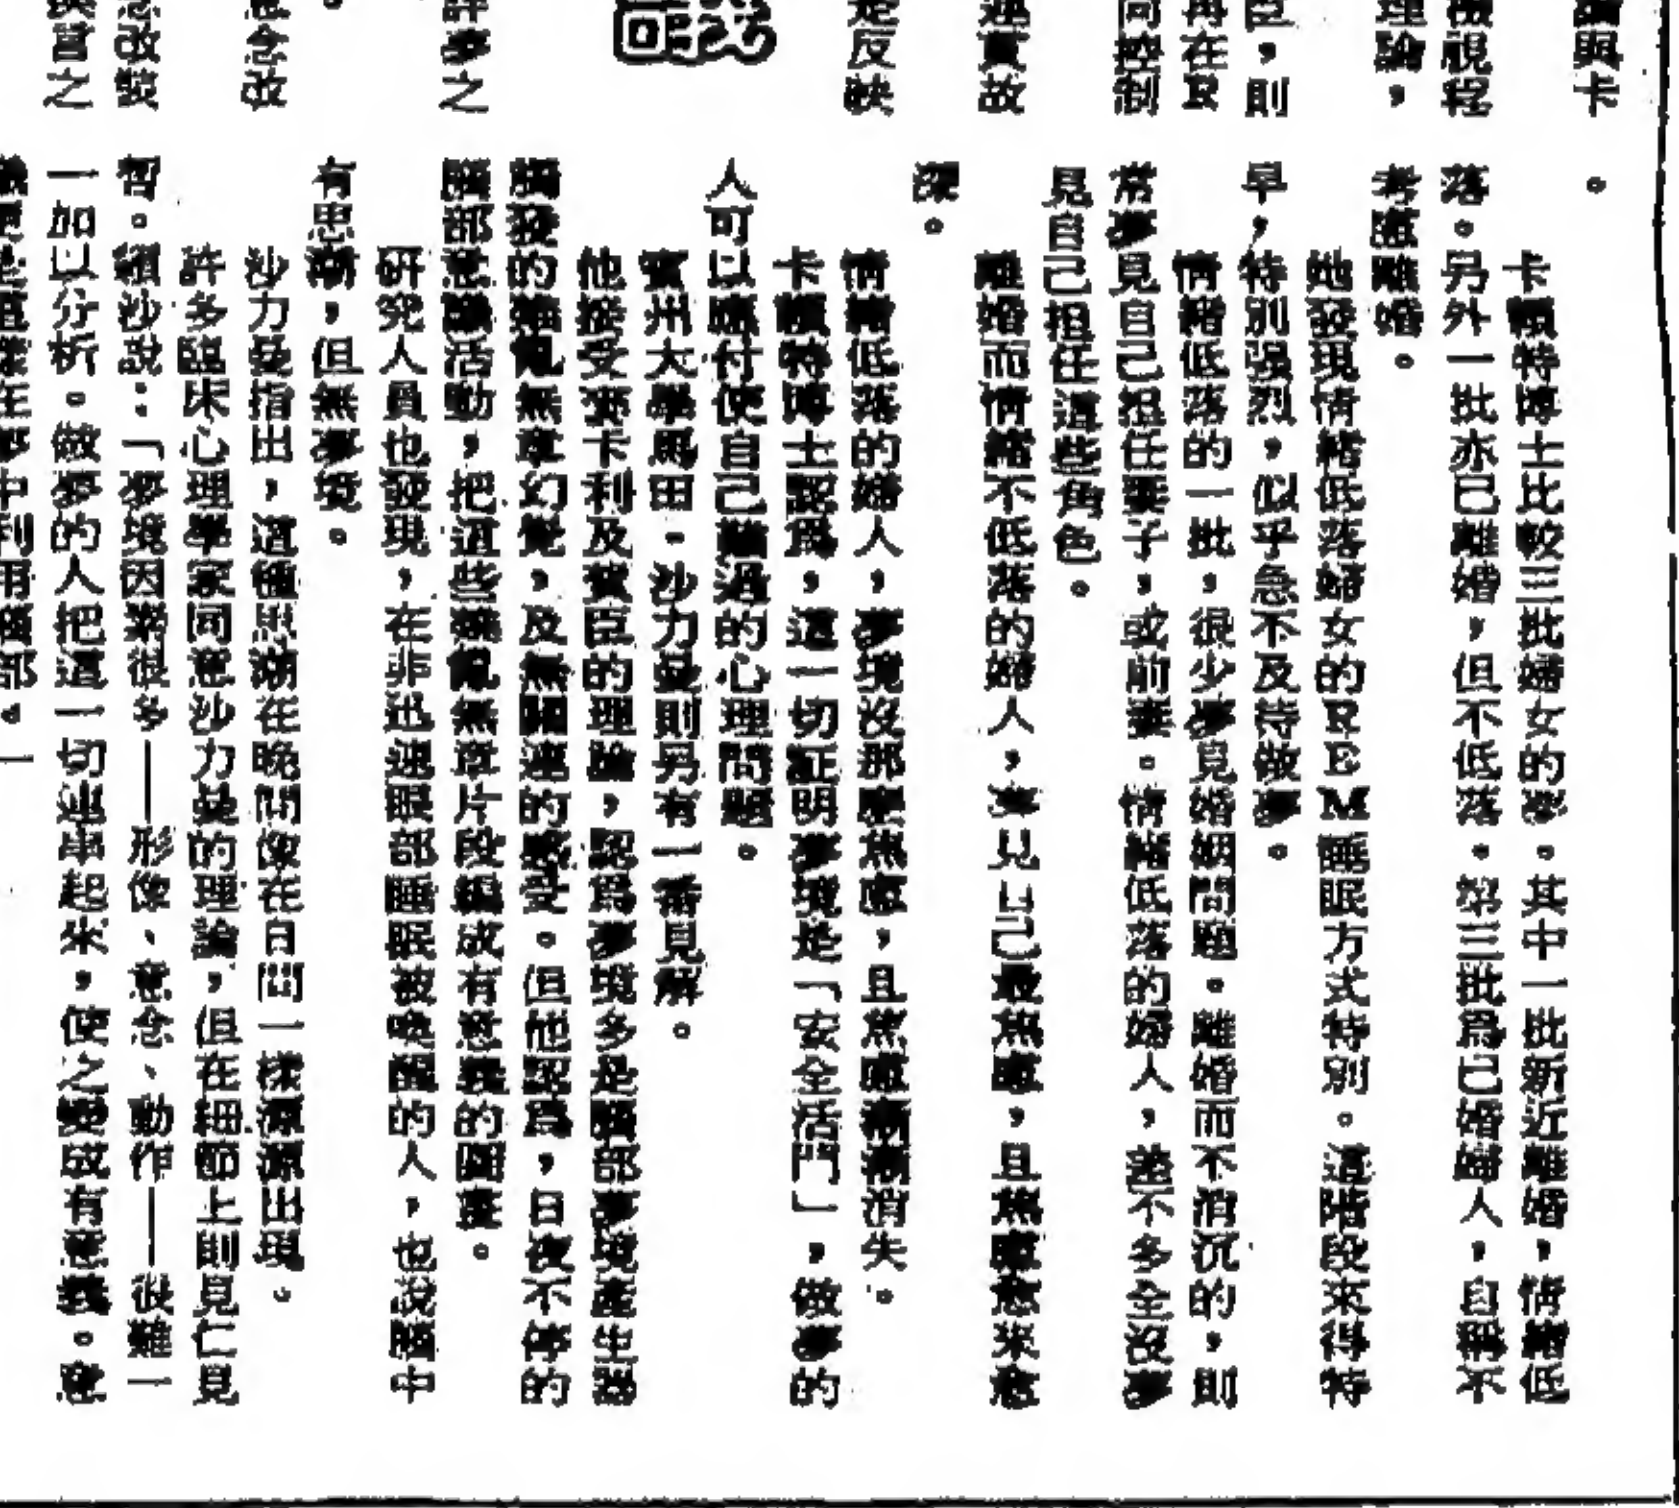 論與卡
視程
理論，
臣，則
再在及
同控制
連貫故
是反映
許夢之
意念改
念改裝
之
。
卡頓特博士比較三批婦女的夢。其中一批新近離婚，情緒低
落。另外一批亦已離婚，但不低落。第三批爲已婚婦人，自稱不
考慮離婚。
她發現情緒低落婦女的REM睡眠方式特別。這階段來得特
早，特別强烈，似乎急不及待做夢。
情緒低落的一批，很少夢見婚姻問題。離婚而不消沉的，則
常夢見自己担任妻子，或前妻。情緒低落的婦人，差不多全沒夢
見自己担任這些角色。
離婚而情緒不低落的婦人，夢見自己最焦慮，且焦慮愈來愈
深。
情緒低落的婦人，夢境沒那麼焦慮，且焦慮漸漸消失。
卡頓特博士認爲，這一切証明夢境是「安全活門」，做夢的
人可以應付使自己難過的心理問題。
賓州大學馬田．沙力曼則另有一番見解。
他接受麥卡利及賓臣的理論，認爲夢境多是腦部夢境產生器
觸發的雜亂無章幻覺，及無關連的感受。但他認爲，日夜不停的
腦部意識活動，把這些雜亂無章片段編成有意義的圖畫。
研究人員也發現，在非迅速眼部睡眠被喚醒的人，也說腦中
有思潮，但無夢境。
沙力曼指出，這種思潮在晚間像在日間一樣源源出現。
許多臨床心理學家同意沙力曼的理論，但在細節上則見仁見
智。賴沙說：「夢境因素很多——形像、意念、動作——很難一
一加以分析。做夢的人把這一切連串起來，使之變成有意義。意
在夢中利用幾部。